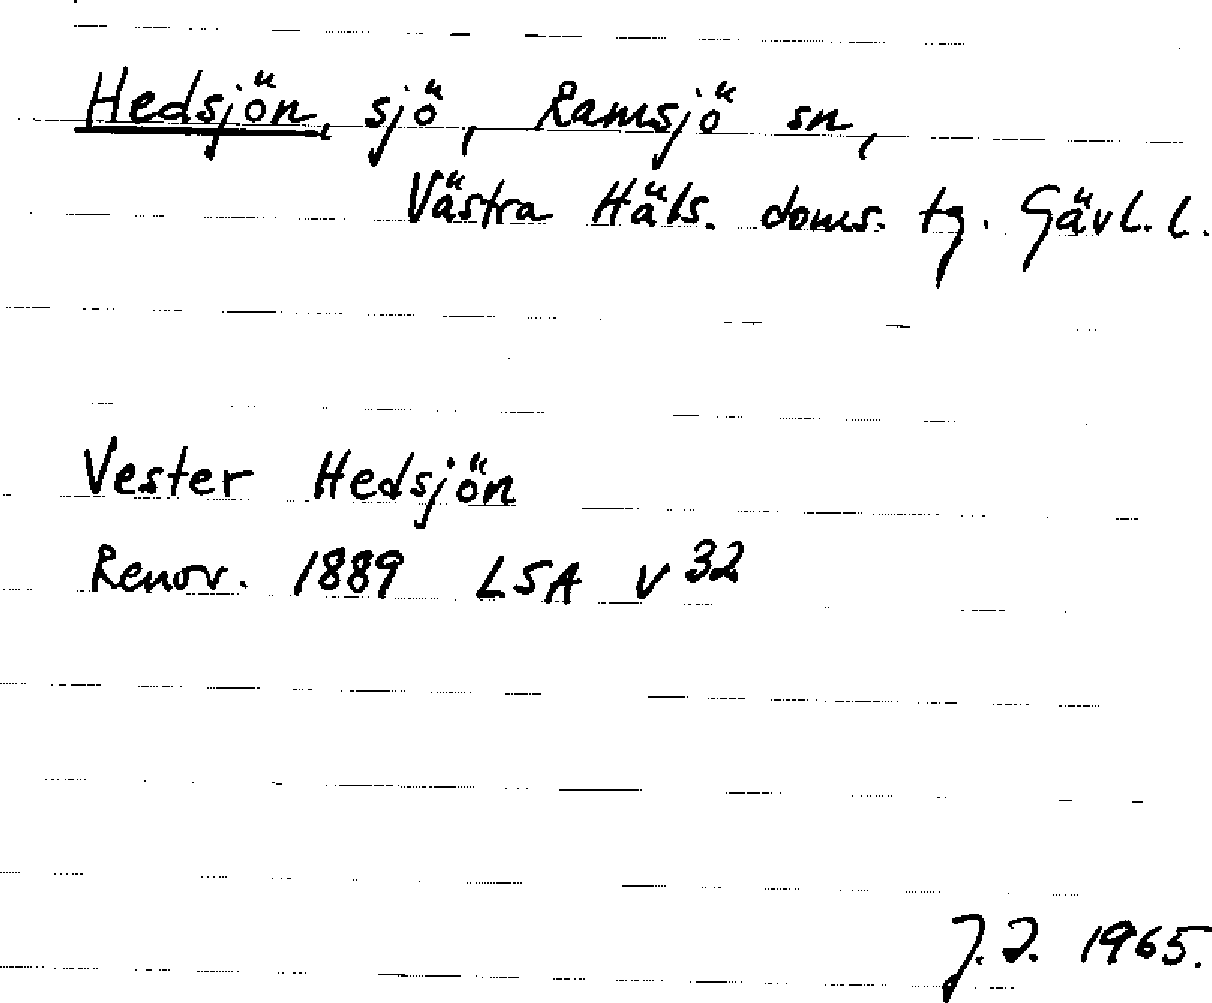 Hedsjön, sjö, Ramsjö sn,
Västra Häls. doms. tg. Gävl. l.
Vester Hedsjön
Renov. 1889 LSA V 32
1965.